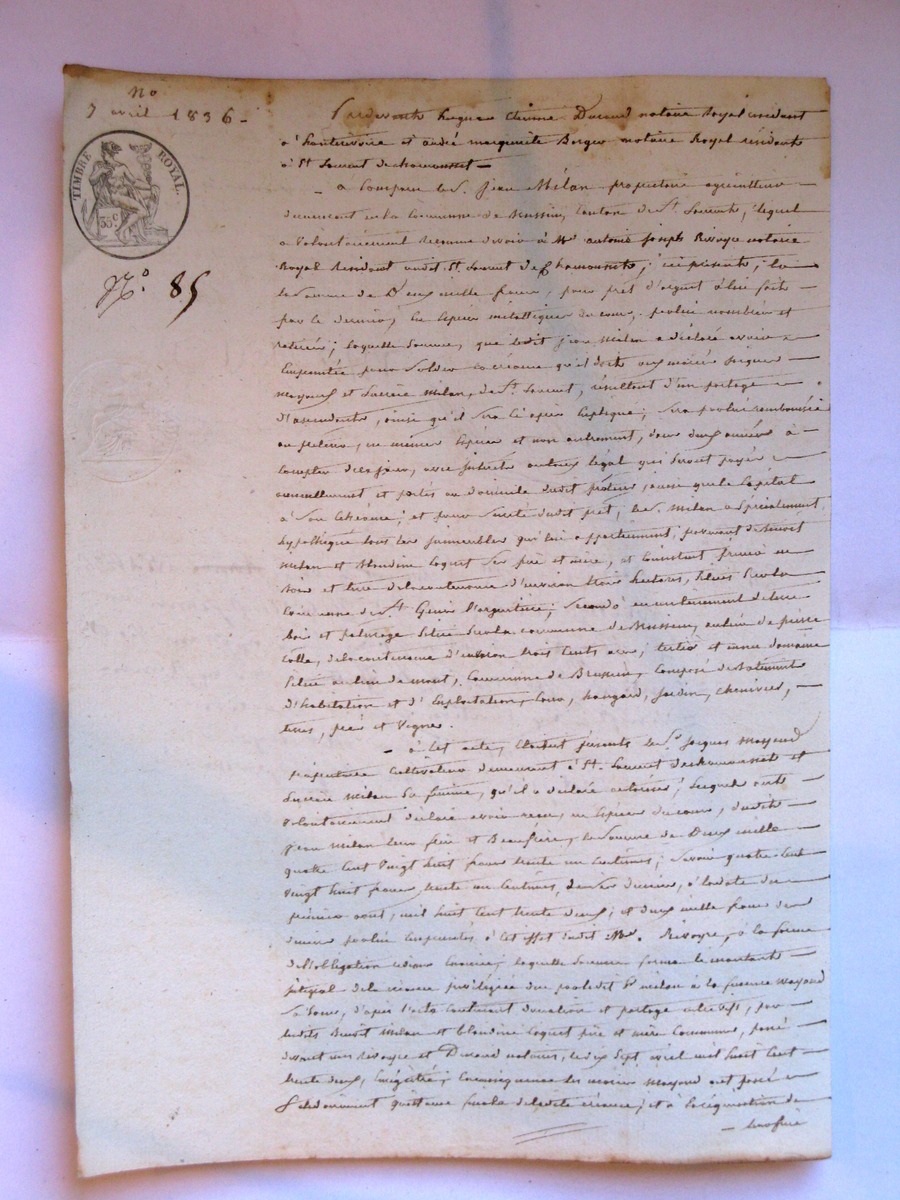 No
7 avril 1836 -
TIMBRE ROYAL.
35 c
No. 85
Pardevant Etienne Durand notaire Royal résident
à et andré marguerite notaire Royal résidant
à St Laurent dechamousset —
- a Comparu le Sr. Jean Milan propriétaire agriculteur
demeurant en la Commune de Brussieu, Canton de St. Laurent, lequel
a Volontairement reconnu devoir à Me antoine joseph Rivoyre notaire
Royal Résidant audit St. Laurent de Chamousset, ici présent, la
Somme de Deux mille francs, pour prêt d'argent à lui fait
par le dernier, en Espèces métalliques du cours, par lui nombrées et
retirées; laquelle Somme, que ledit jean Milan a déclaré avoir
Empruntée pour Solder la créance qu'il doit aux mariés jacques
Mayoud et Milan, de St. Laurent, résultant d'un partage
d'ascendants, ainsi qu'il Sera Ci après Expliqué, Sera par lui remboursée
en mêmes Espèces et non autrement, dans deux années à
Compter de ce jour, avec intérêts au taux légal qui Seront payés
annuellement et portés au Domicile dudit prêteur, ainsi que le Capital
à Son échéance; et pour Sûreté dudit prêt, le Sr. Milan a Spécialement
hypothéqué tous les immeubles qui lui appartiennent, provenant de Benoit
Milan et Blandine Coquet Ses père et mère, et Consistant primo en
bois et terre de la contenance d'environ trois hectares, Situés Sur la
Commune de St. Genis l'argentière; Secondo en un tènement de terre
bois et paturage Situé Sur la commune de Brussieu, au lieu de pierre
Colle, de la contenance d'environ trois cents ares; tertio et en un domaine
Situé au lieu de mont, Commune de Brussieu, Composé de Batiments
d'habitation et d'Exploitation, Cour, hangard, jardin, chenevier,
terres, prés et Vignes.
- à Cet acte, Etaient présents le Sr. Jacques Mayoud
propriétaire Cultivateur demeurant à St. Laurent dechamousset et
Milan Sa femme, qu'il a déclaré autoriser; lesquels ont
Volontairement déclaré avoir reçu, en Espèces du cours, dudit
Jean Milan leur frère et Beaufrère, la Somme de Deux mille
quatre Cent Vingt huit francs trente un Centimes; Savoir quatre Cent
Vingt huit francs trente un Centimes, de Ses Deniers, à la date du
premier aout, mil huit Cent trente deux; et deux mille francs des
deniers par lui Empruntés à Cet Effet dudit Me. Rivoyre, à la forme
de l'obligation Laquelle Somme forme le montant
intégral de la créance privilégiée due par ledit Sr Milan à la femme Mayoud
Sa Soeur, d'après l'acte Contenant donation et partage par
lesdits Benoit Milan et blandine Coquet père et mère Communs, passé
devant Mes Rivoyre et Durand notaires, le dix Sept avril mil huit Cent
trente deux, Enrégistré; Enconséquence les mariés Mayoud ont passé
quittance de ladite créance, et à la réquisition de
- leur frère